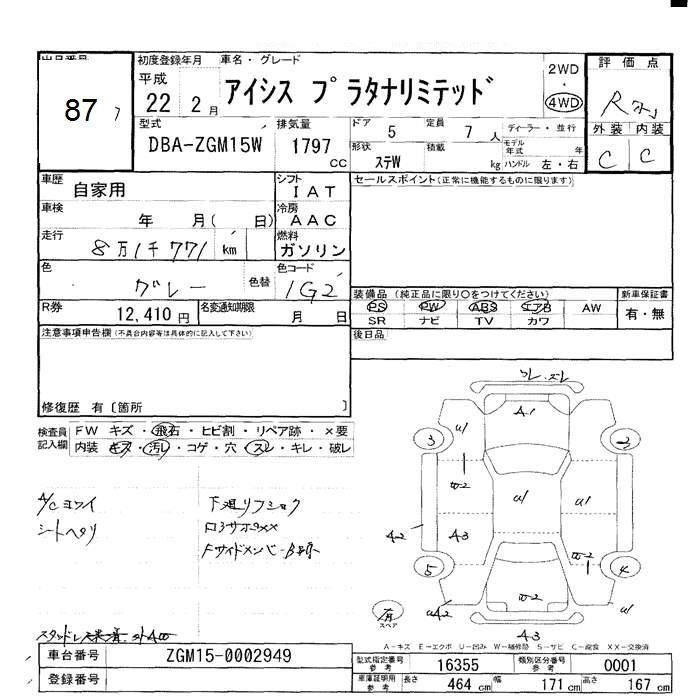 出品番号
初度登録年月
車名・グレード
87
平成
22 2月
アイシス プラタナリミテッド
2WD
・
4WD
評価点
R
外装 内装
C C
型式
DBA-ZGM15W
排気量
1797
CC
ドア 5
定員 7 人
ディーラー・並行
形状 ステW
積載 kg
モデル年式 年
ハンドル 左・右
車歴
自家用
シフト
I A T
セールスポイント(正常に機能するものに限ります)
車検
年 月( 日)
冷房
A A C
走行
8万1千771 km
燃料
ガソリン
色
グレー
色替
色コード
1G2
R券
12,410 円
名変通知期限
月 日
装備品(純正品に限り○をつけてください)
新車保証書
PS PW ABS エアB AW
有・無
SR ナビ TV カワ
注意事項申告欄(不具合内容等は具体的に記入して下さい)
後日品
修復歴 有〔箇所 〕
検査員記入欄
FW キズ・飛石・ヒビ割・リペア跡・×要
内装 キズ・汚レ・コゲ・穴・スレ・キレ・破レ
A/Cヨワイ
シートヘタリ
A1
U1
3
2
W2
U1
U1
A2
A3
W2
5
4
W2
UA2
U1
A3
有
スペア
A-キズ E-エクボ U-凹み W-補修跡 S-サビ C-腐食 XX-交換済
車台番号
ZGM15-0002949
登録番号
型式指定番号
参考
16355
類別区分番号
参考
0001
車庫証明用
参考
長さ 464 cm
幅 171 cm
高さ 167 cm